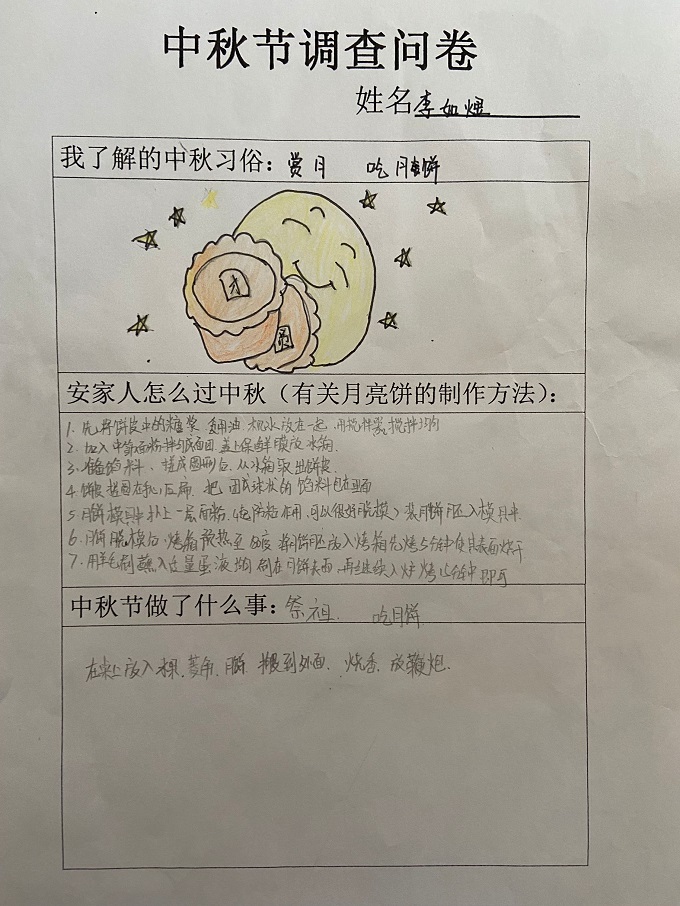 中秋节调查问卷
姓名李如煜
我了解的中秋习俗：赏月 吃月饼
团
圆
安家人怎么过中秋（有关月亮饼的制作方法）：
1. 先将饼皮中的糖浆 食用油 枧水放在一起 用搅拌器搅拌均匀
2. 加入中筋面粉拌匀成面团 盖上保鲜膜放冰箱.
3. 馅料、搓成圆形后、从冰箱取出饼皮
4. 饼皮搓圆在手心压扁. 把团成球状的馅料包在里面
5. 月饼模具中扑上一层面粉.（起防粘作用，可以很好脱模）装月饼胚入模具中.
6. 月饼脱模后. 烤箱预热至 度 将月饼胚放入烤箱先烤5分钟使其表面烘干
7. 用羊毛刷蘸入适量蛋液均匀刷在月饼表面，再继续入炉烤15分钟即可
中秋节做了什么事：祭祖. 吃月饼
在桌上放入水果. 菱角. 月饼. 搬到外面. 烧香. 放鞭炮.